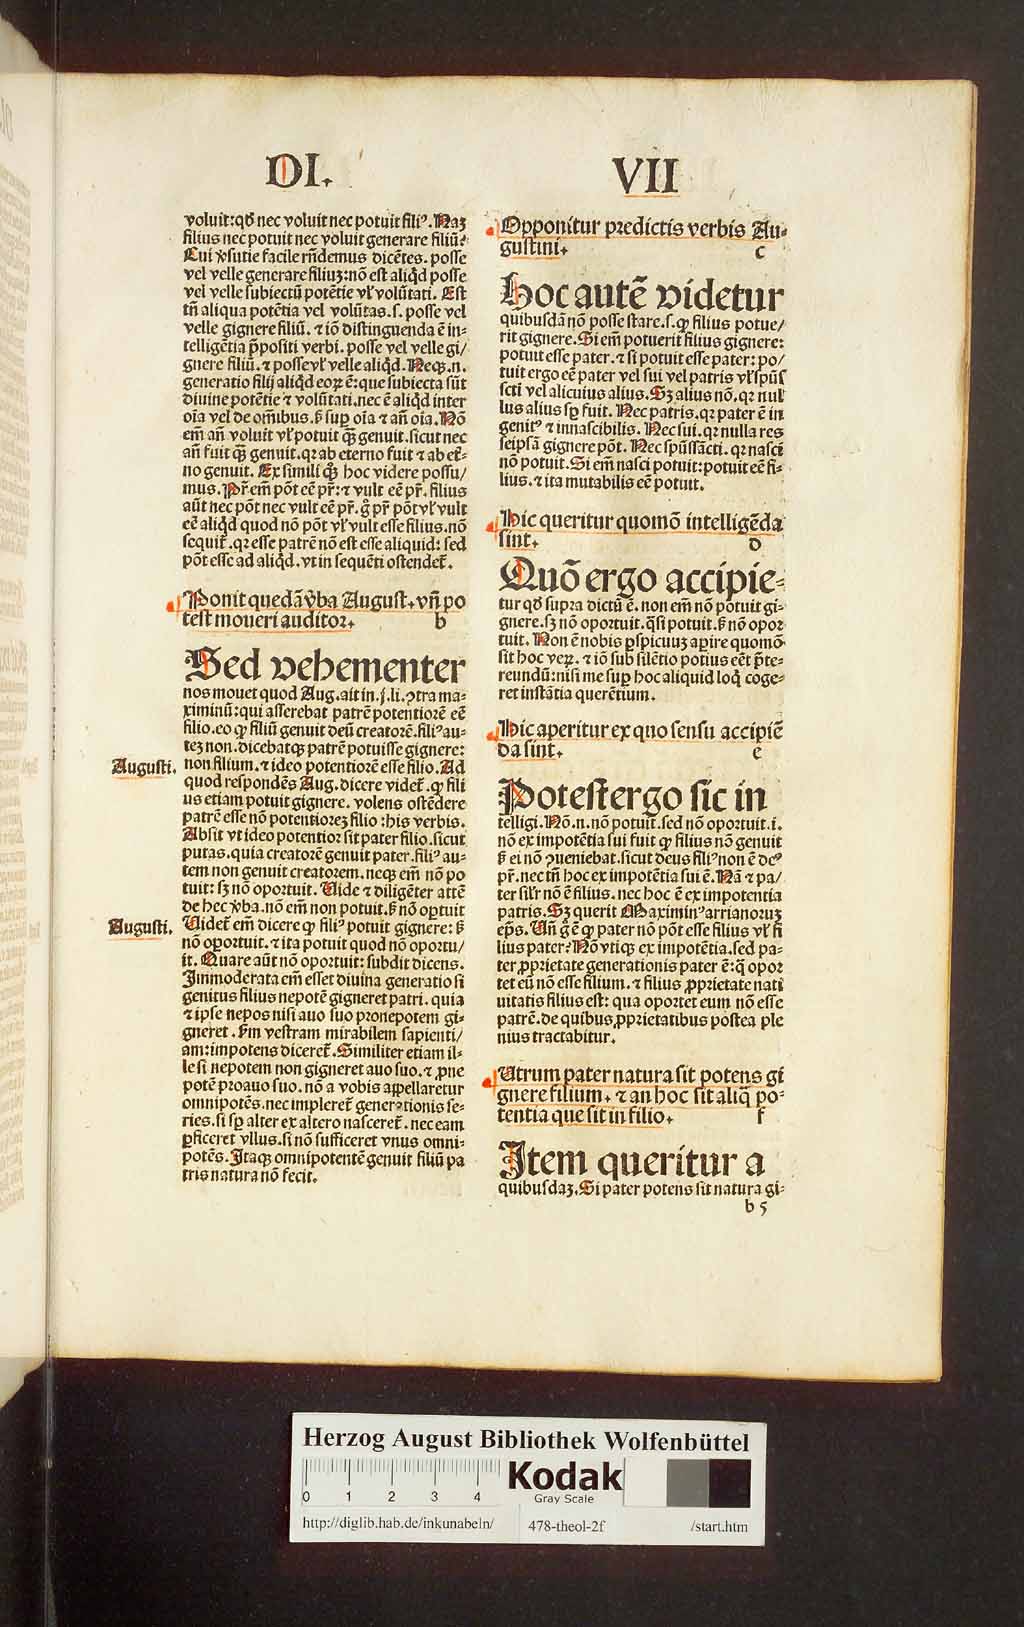 DI.
VII
voluit:qđ nec voluit nec potuit filiꝰ. Naꝫ
filius nec potuit nec voluit generare filiū?
Cui ꝟsutie facile rn̄demus dicētes. posse
vel velle generare filiuꝫ:nō est aliqd posse
vel velle subiectū potētie vł volūtati. Est
tn̄ aliqua potētia vel volūtas.s. posse vel
velle gignere filiū. ⁊ iō distinguenda ē in-
telligētia p̄positi verbi. posse vel velle gi/
gnere filiū. ⁊ posse vł velle aliqd. Neqꝫ.n.
generatio filij aliqd eoꝝ ē: que subiecta sūt
diuine potētie ⁊ volūtati. nec ē aliqd inter
oīa vel de oīnibus. ꝫ suꝑ oīa ⁊ an̄ oīa. Nō
em̄ an̄ voluit vł potuit q̄ꝫ genuit. sicut nec
an̄ fuit q̄ꝫ genuit. qꝛ ab eterno fuit ⁊ ab et̄-
no genuit. Ex simili qꝫ hoc videre possu/
mus. Pr̄ em̄ pōt eē pr̄: ⁊ vult eē pr̄. filius
aūt nec pōt nec vult eē pr̄. g̊ pr̄ pōt vł vult
eē aliqd quod nō pōt vł vult esse filius. nō
sequit̄. qꝛ esse patrē nō est esse aliquid: sed
pōt esse ad aliqd. vt in sequēti ostendet̄.
Ponit quedā ꝟba August. vn̄ po
test moueri auditor.
b
Sed vehementer
nos mouet quod Aug. ait in.j.li. ꝯtra ma-
ximinū: qui asserebat patrē potentiorē eē
filio. eo ꝙ filiū genuit deū creatorē. filiꝰ au-
teꝫ non. dicebatqꝫ patrē potuisse gignere:
Augusti.
non filium. ⁊ ideo potentiorē esse filio. Ad
quod respondēs Aug. dicere videt̄. ꝙ fili
us etiam potuit gignere. volens ostēdere
patrē esse nō potentioreꝫ filio : his verbis.
Absit vt ideo potentior sit pater filio. sicut
putas. quia creatorē genuit pater. filiꝰ au-
tem non genuit creatorem. neqꝫ em̄ nō po
tuit: sꝫ nō oportuit. Vide ⁊ diligēter attē
de hec ꝟba. nō em̄ non potuit. ꝫ nō oportuit
Augusti.
Videt̄ em̄ dicere ꝙ filiꝰ potuit gignere: ꝫ
nō oportuit. ⁊ ita potuit quod nō oportu/
it. Quare aūt nō oportuit: subdit dicens.
Immoderata em̄ esset diuina generatio si
genitus filius nepotē gigneret patri. quia
⁊ ipse nepos nisi auo suo pronepotem gi-
gneret. Fm vestram mirabilem sapienti/
am: impotens diceret̄. Similiter etiam il-
le si nepotem non gigneret auo suo. ⁊ ꝓne
potē proauo suo. nō a vobis appellaretur
omnipotēs. nec impleret̄ generationis se-
ries. si sꝑ alter ex altero nasceret̄. nec eam
ꝑficeret vllus. si nō sufficeret vnus omni-
potēs. Itaqꝫ omnipotentē genuit filiū pa
tris natura nō fecit.
Opponitur predictis verbis Au-
gustini.
c
Hoc autē videtur
quibusdā nō posse stare.s. ꝙ filius potue/
rit gignere. Si em̄ potuerit filius gignere:
potuit esse pater. ⁊ si potuit esse pater: po/
tuit ergo eē pater vel sui vel patris vł spūs
scti vel alicuius alius. Sꝫ alius nō. qꝛ nul
lus alius sꝑ fuit. Nec patris. qꝛ pater ē in
genitꝰ ⁊ innascibilis. Nec sui. qꝛ nulla res
seipsā gignere pōt. Nec spūssācti. qꝛ nasci
nō potuit. Si em̄ nasci potuit: potuit eē fi-
lius. ⁊ ita mutabilis eē potuit.
Hic queritur quomō intelligēda
sint.
d
Quō ergo accipie-
tur qđ supra dictū ē. non em̄ nō potuit gi-
gnere. sꝫ nō oportuit. q̄si potuit. ꝫ nō opor
tuit. Non ē nobis ꝑspicuuꝫ aꝑire quomō
sit hoc veꝝ. ⁊ iō sub silētio potius eēt p̄te-
reundū: nisi me suꝑ hoc aliquid loqͥ coge-
ret instātia querētium.
Hic aperitur ex quo sensu accipiē
da sint.
e
Potest ergo sic in
telligi. Nō.n. nō potuit. sed nō oportuit.i.
nō ex impotētia sui fuit ꝙ filius nō genuit
ꝫ ei nō ꝯueniebat. sicut deus filiꝰ non ē deꝰ
pr̄. nec tn̄ hoc ex impotētia sui ē. Nā ⁊ pa/
ter silr̄ nō ē filius. nec hoc ē ex impotentia
patris. Sꝫ querit Maximinꝰ arrianoruꝫ
ep̄s. Vn̄ g̊ ē ꝙ pater nō pōt esse filius vł fi
lius pater? Nō vtiqꝫ ex impotētia. sed pa-
ter ꝓprietate generationis pater ē: q̄ opor
tet eū nō esse filium. ⁊ filius ꝓprietate nati
uitatis filius est: qua oportet eum nō esse
patrē. de quibus ꝓprietatibus postea ple
nius tractabitur.
Utrum pater natura sit potens gi
gnere filium. ⁊ an hoc sit aliq̄ po-
tentia que sit in filio.
f
Item queritur a
quibusdaꝫ. Si pater potens sit natura gi-
b 5
Herzog August Bibliothek Wolfenbüttel
0 1 2 3 4
Kodak
Gray Scale
http://diglib.hab.de/inkunabeln/
478-theol-2f
/start.htm